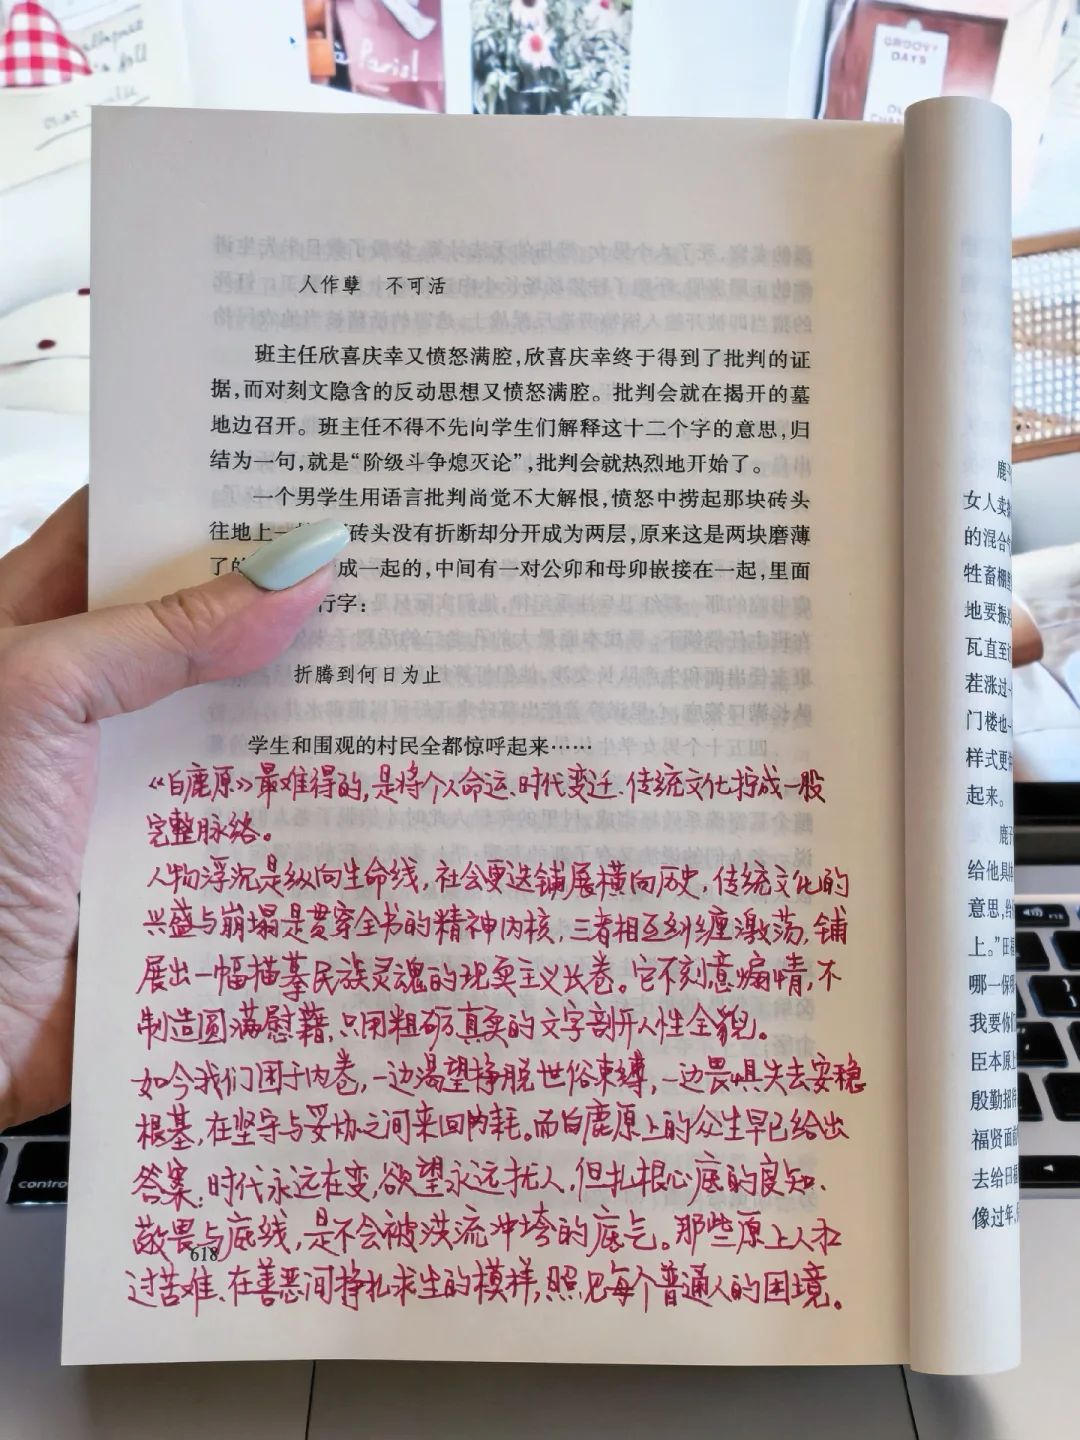 à Paris!
GROOVY
DAYS
人作孽 不可活
班主任欣喜庆幸又愤怒满腔，欣喜庆幸终于得到了批判的证
据，而对刻文隐含的反动思想又愤怒满腔。批判会就在揭开的墓
地边召开。班主任不得不先向学生们解释这十二个字的意思，归
结为一句，就是“阶级斗争熄灭论”，批判会就热烈地开始了。
一个男学生用语言批判尚觉不大解恨，愤怒中捞起那块砖头
往地上一 砖头没有折断却分开成为两层，原来这是两块磨薄
了的 成一起的，中间有一对公卯和母卯嵌接在一起，里面
行字：
折腾到何日为止
学生和围观的村民全都惊呼起来……
《白鹿原》最难得的，是将个人命运、时代变迁、传统文化拧成一股
完整脉络。
人物浮沉是纵向生命线，社会更迭铺展横向历史，传统文化的
兴盛与崩塌是贯穿全书的精神内核，三者相互纠缠激荡，铺
展出一幅描摹民族灵魂的现实主义长卷。它不刻意煽情，不
制造圆满慰藉，只用粗砺真实的文字剖开人性全貌。
如今我们困于内卷，一边渴望挣脱世俗束缚，一边畏惧失去安稳
根基，在坚守与妥协之间来回内耗。而白鹿原上的众生早已给出
答案：时代永远在变，欲望永远扰人，但扎根心底的良知、
敬畏与底线，是不会被洪流冲垮的底气。那些原上人和
618
过苦难、在善恶间挣扎求生的模样，照见每个普通人的困境。
鹿子
女人卖
的混合
牲畜棚
地要振
瓦直至
茬涨过一
门楼也
样式更
起来。
鹿子
给他具
意思，给
上。”田
哪一保
我要你们
臣本原上
殷勤招待
福贤面前
去给田福
像过年，
control